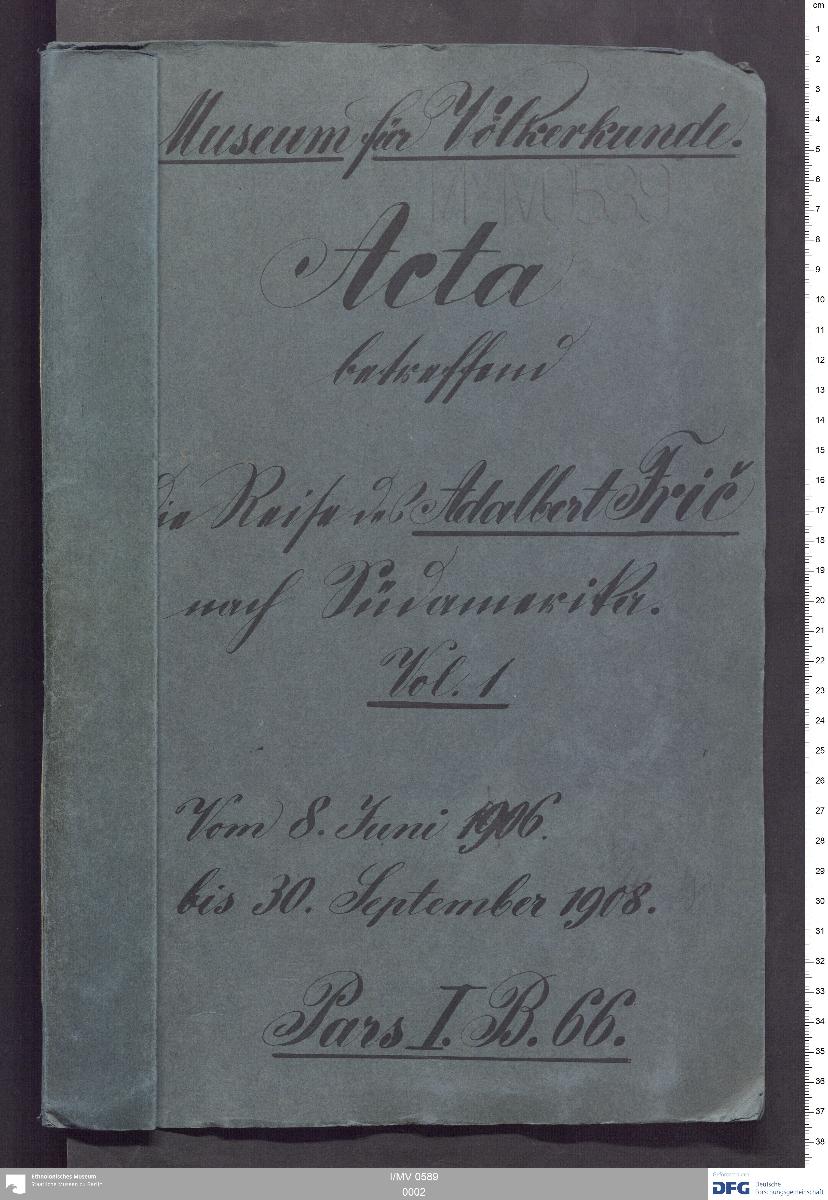 Museum für Völkerkunde.
I/MV 0589
Acta
betreffend
die Reise des Adalbert Frič
nach Südamerika.
Vol. 1
Vom 8. Juni 1906.
bis 30. September 1908.
Pars I. B. 66.
cm
1
2
3
4
5
6
7
8
9
10
11
12
13
14
15
16
17
18
19
20
21
22
23
24
25
26
27
28
29
30
31
32
33
34
35
36
37
38
Ethnologisches Museum
Staatliche Museen zu Berlin
I/MV 0589
0002
Gefördert von
DFG Deutsche
Forschungsgemeinschaft